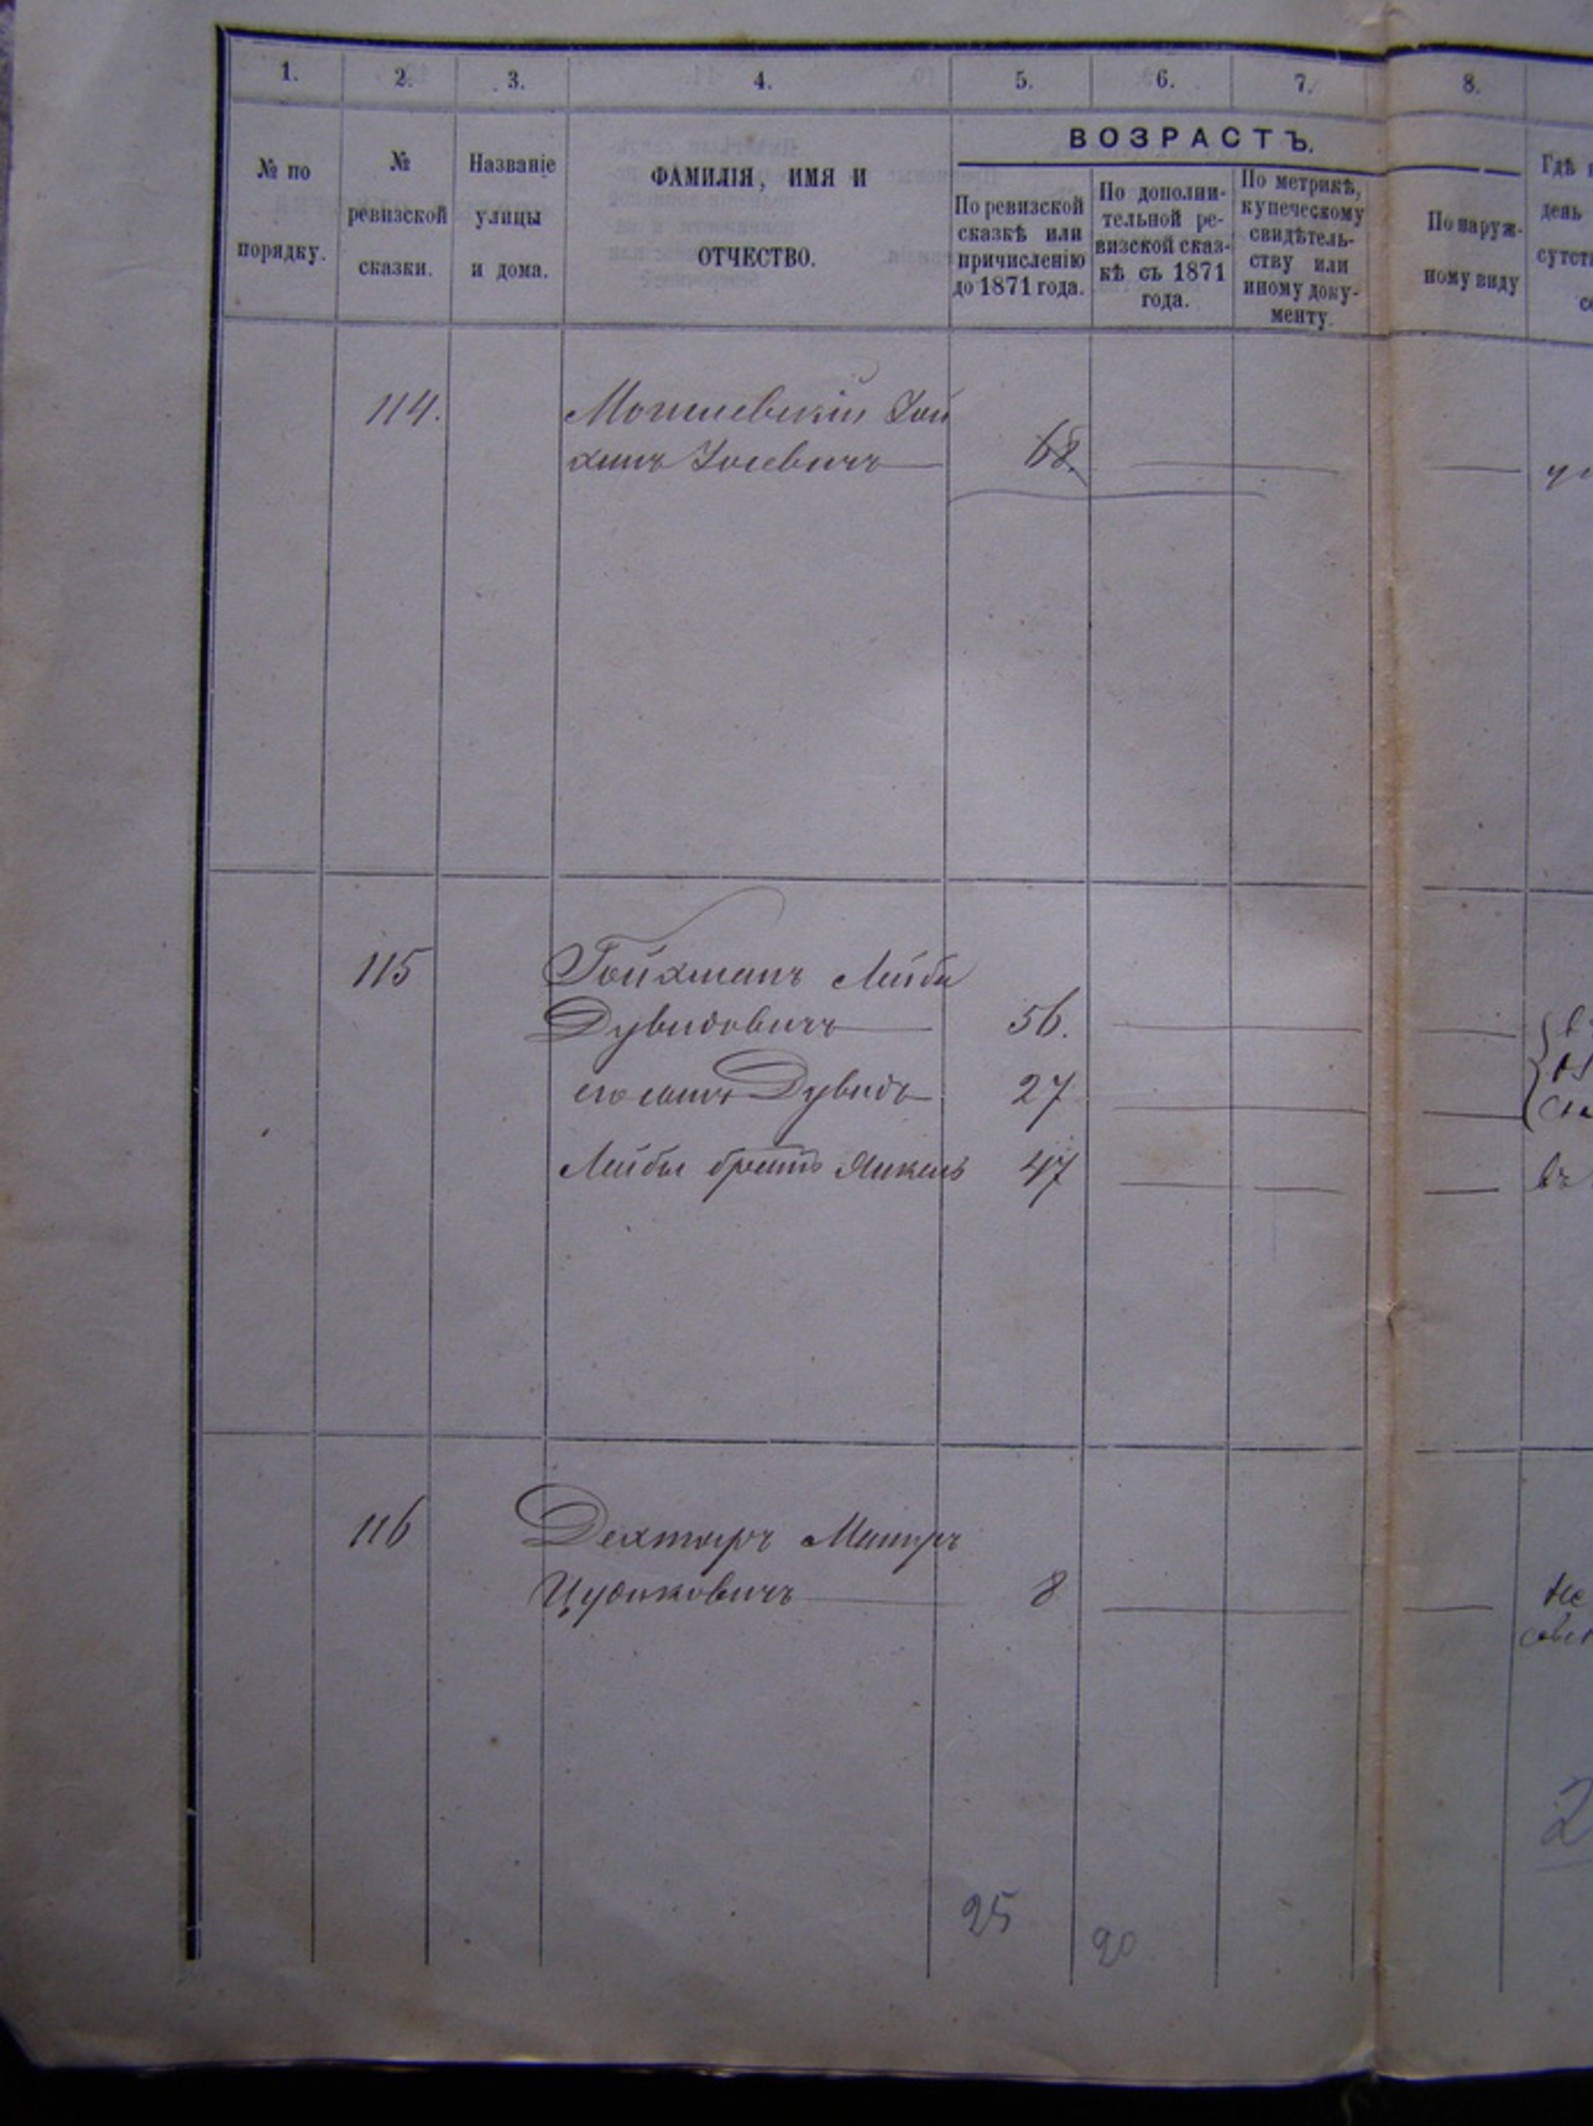 1. 2. 3. 4. 5. 6. 7. 8.
№ по порядку.
№ ревизской сказки.
Названіе улицы и дома.
ФАМИЛІЯ, ИМЯ И ОТЧЕСТВО.
ВОЗРАСТЪ.
По ревизской сказкѣ или причисленію до 1871 года.
По дополни-тельной ре-визской сказ-кѣ съ 1871 года.
По метрикѣ, купеческому свидѣтель-ству или иному доку-менту.
По наруж-ному виду
Гдѣ
день
114. Могилевскій Хой
68.
115 Гойхманъ Лейба
Дувидовичъ 56.
его сынъ Дувидъ 27
Лейбы братъ Янкель 47
въ
116 Дехтяръ
8
Не
25
20
2